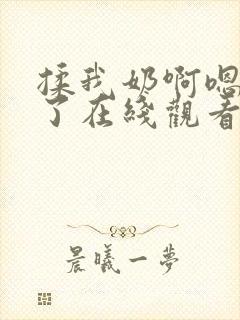 揉我奶啊嗯
了在綫觀看
晨曦一夢